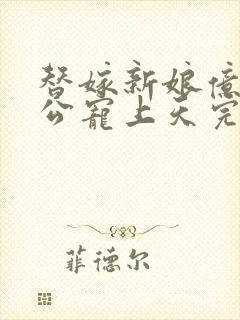 替嫁新娘億
公寵上天完
菲德尔